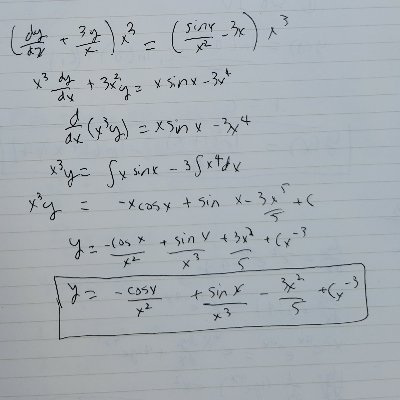 (dy/dx + 3y/x) x^3 = (sinx/x^2 - 3x) x^3
x^3 dy/dx + 3x^2y = x sinx - 3x^4
d/dx (x^3y) = x sin x - 3x^4
x^3y = ∫x sinx - 3∫x^4dx
x^3y = -xcosx + sin x - 3x^5/5 + C
y = -cos x/x^2 + sin x/x^3 + 3x^2/5 + Cx^-3
y = -cosx/x^2 + sin x/x^3 - 3x^2/5 + Cx^-3